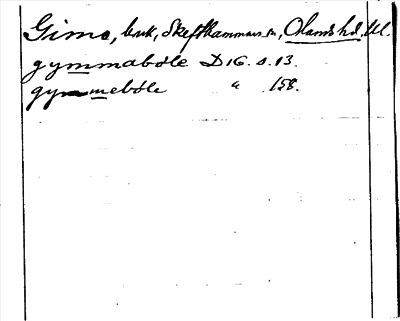 Gimo, bruk, Skefthammars sn, Olands hd. Upl.
gymmabóle DIG. s. 13.
gymmebóle " 158.